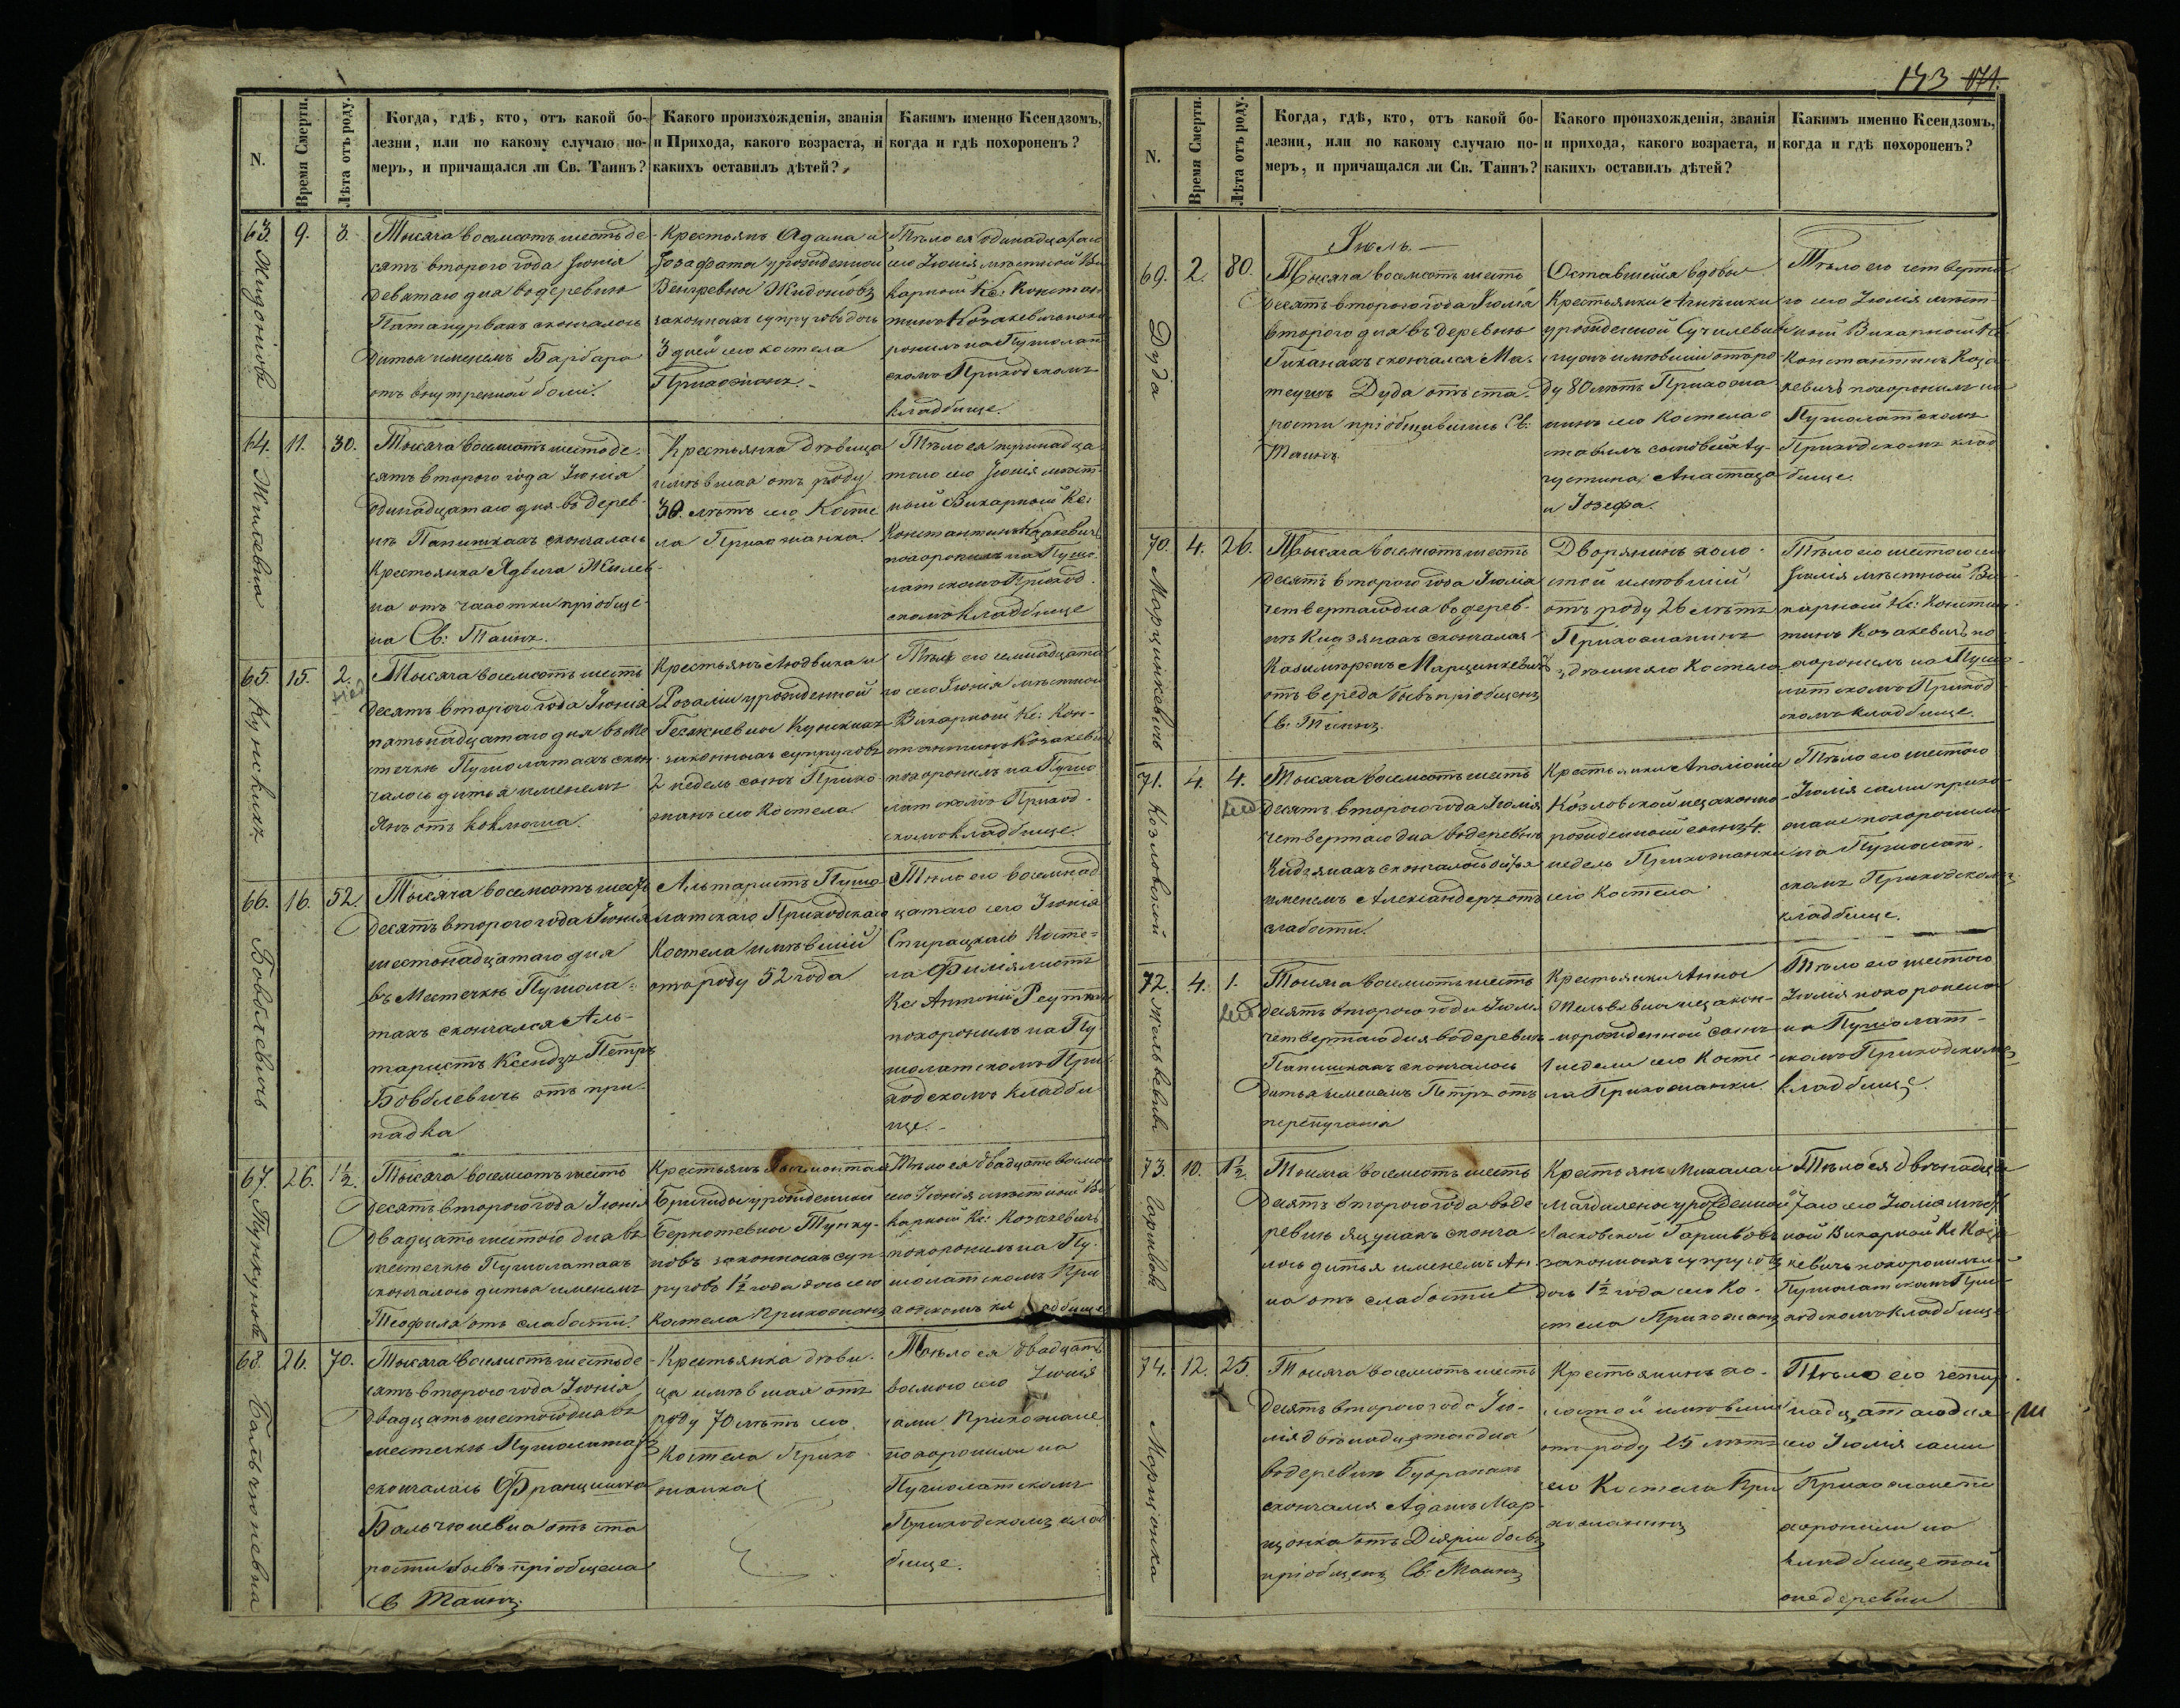 173 174.
N.
Время Смерти.
Лѣта отъ роду.
Когда, гдѣ, кто, отъ какой бо-
лезни, или по какому случаю по-
меръ, и причащался ли Св. Таинъ?
Какого произхожденія, званія
и Прихода, какого возраста, и
какихъ оставилъ дѣтей?
Какимъ именно Ксендзомъ,
когда и гдѣ похороненъ?
63. 9. 3.
Тысяча восемсотъ шестьде-
сятъ второго года Іюнія
девятаго дня въ деревни
скончалось
дитя именемъ Барбара
отъ внутренной боли.
Крестьянъ Адама и
Іозафаты урожденной
законныхъ супруговъ дочь
3 дней сего костела
Прихожанъ.
Тѣло ея одинадцатаго
сего Іюнія мѣстной Ви-
карной Кс: Констан-
тинъ Козакевичъ похо-
ронилъ на Пушолат-
скомъ Приходскомъ
кладбище.
64. 11. 30.
Тысяча восемсотъ шестьде-
сятъ второго года Іюнія
одинадцатаго дня въ дерев-
нѣ Папишкахъ скончалась
Крестьянка Ядвига
на отъ чахотки пріобще-
на Св: Таинъ.
Крестьянка дѣвица
имѣвшая отъ роду
30. лѣтъ сего Косте
ла Прихожанка.
Тѣло ея тринадца-
таго сего Іюнія мѣст
ной Викарной Кс:
Константинъ Козакевичъ
похоронилъ на Пушо-
латскомъ Приход-
скомъ кладбище
65. 15. 2.
Тысяча восемсотъ шесть
десятъ второго года Іюнія
пятьнадцатаго дня въ Ме
стечкѣ Пушолатахъ скон-
чалось дитя именемъ
Янъ отъ коклюша.
Крестьянъ Людвика и
Розаліи урожденной
законныхъ супруговъ
2 недель сынъ Прихо-
жанъ сего Костела
Тѣло его семнадцата
го сего Іюнія мѣстной
Викарной Кс: Кон-
стантинъ Козакевичъ
похоронилъ на Пушо
латскомъ Приход-
скомъ кладбище.
66. 16. 52.
Бовблевичъ
Тысяча восемсотъ шесть
десятъ второго года Іюнія
шестьнадцатаго дня
въ Местечкѣ Пушола-
тахъ скончался Аль-
таристъ Ксендзъ Петръ
Бовблевичъ отъ при-
падка
Альтаристъ Пушо-
латскаго Приходскаго
Костела имѣвшій
отъ роду 52 года
Тѣло его восемнад
цатаго сего Іюнія
Косте-
ла
Кс Антоній
похоронилъ на Пу
шолатскомъ При
ходскомъ кладби
ще.
67. 26. 1½.
Тысяча восемсотъ шесть
десятъ второго года Іюнія
двадцать шестого дня въ
местечкѣ Пушолатахъ
скончалось дитя именемъ
Теофила отъ слабости.
Бригиды урожденной
новъ законныхъ суп-
руговъ 1½ года дочь сего
Костела Прихожанъ
Тѣло ея двадцать восмого
сего Іюнія мѣстной Ви
карной Кс: Козакевичъ
похоронилъ на Пу-
шолатскомъ При
ходскомъ кладбище
68. 26. 70.
Бальчюневна
Тысяча восемсотъ шестьде
сятъ второго года Іюнія
двадцать шестого дня въ
местечкѣ Пушолатахъ
скончалась Францишка
Бальчюневна отъ ста
рости бывъ пріобщена
Св Таинъ
Крестьянка дѣви-
ца имѣвшая отъ
роду 70 лѣтъ сего
Костела Прихо
жанка
Тѣло ея двадцать
восмого сего Іюнія
сами Прихожане
похоронили на
Пушолатскомъ
Приходскомъ клад
бище.
N.
Время Смерти.
Лѣта отъ роду.
Когда, гдѣ, кто, отъ какой бо-
лезни, или по какому случаю по-
меръ, и причащался ли Св. Таинъ?
Какого произхожденія, званія
и прихода, какого возраста, и
какихъ оставилъ дѣтей?
Какимъ именно Ксендзомъ,
когда и гдѣ похороненъ?
Іюль.
69. 2. 80.
Дуда
Тысяча восемсотъ шесть
десятъ второго года Іюлія
второго дня въ деревнѣ
скончался Ма-
теушъ Дуда отъ ста-
рости пріобщившись Св:
Таинъ.
Оставшейся вдовы
Крестьянки Агнѣшки
урожденной
мужъ имѣвшій отъ ро
ду 80 лѣтъ Прихожа-
нинъ сего Костела о
ставилъ сыновей Ау-
густина, Анастаза
и Іозефа.
Тѣло его четверта
го сего Іюлія мѣст-
ной Викарной Кс
Константинъ Коза-
кевичъ похоронилъ на
Пушолатскомъ
Приходскомъ клад
бище.
70. 4. 26.
Марцинкевичъ
Тысяча восемсотъ шесть
десятъ второго года Іюлія
четвертаго дня въ дерев-
нѣ Кидзянахъ скончался
Казимѣръ Марцинкевичъ
отъ вереда бывъ пріобщенъ
Св: Таинъ
Дворянинъ холо-
стой имѣвшій
отъ роду 26 лѣтъ
Прихожанинъ
здѣшняго Костела
Тѣло его шестого сего
Іюлія мѣстной Ви-
карной Кс: Констан-
тинъ Козакевичъ по-
хоронилъ на Пушо-
латскомъ Приход-
скомъ кладбище.
71. 4. 4.
Козловской
Тысяча восемсотъ шесть
десятъ второго года Іюлія
четвертаго дня въ деревнѣ
Кидзянахъ скончалось дитя
именемъ Александеръ отъ
слабости.
Крестьянки Аполоніи
Козловской незаконно-
рожденной сынъ 4.
недель Прихожанки
сего Костела
Тѣло его шестого
Іюлія сами прихо-
жане похоронили
на Пушолат-
скомъ Приходскомъ
кладбище.
72. 4. 1.
Тысяча восемсотъ шесть
десятъ второго года Іюлія
четвертаго дня въ деревнѣ
Папишкахъ скончалось
дитя именемъ Петръ отъ
перепуганія
Крестьянки Анны
незакон-
норожденной сынъ
1 недели сего Косте-
ла Прихожанки.
Тѣло его шестого
Іюлія похоронено
на Пушолат-
скомъ Приходскомъ
кладбище.
73. 10. 1½
Тысяча восемсотъ шесть
десятъ второго года въ де
ревнѣ сконча-
лось дитя именемъ Ан-
на отъ слабости
Крестьянъ Михала и
Магдалены урожденной
законныхъ супруговъ
дочь 1½ года сего Ко-
стела Прихожанъ
Тѣло ея двѣнадца
таго сего Іюлія мѣст
ной Викарной Кс Коза
кевичъ похоронилъ на
Пушолатскомъ При
ходскомъ кладбище
74. 12. 25.
Марцюнка
Тысяча восемсотъ шесть
десятъ второго года Ію-
лія двѣнадцатаго дня
въ деревнѣ
скончался Адамъ Мар-
цюнка отъ Діяріи бывъ
пріобщенъ Св. Таинъ
Крестьянинъ хо-
лостой имѣвшій
отъ роду 25 лѣтъ
сего Костела При
хожанинъ
Тѣло его четыр-
надцатаго дня
сего Іюлія сами
Прихожане по
хоронили на
кладбище той
же деревни